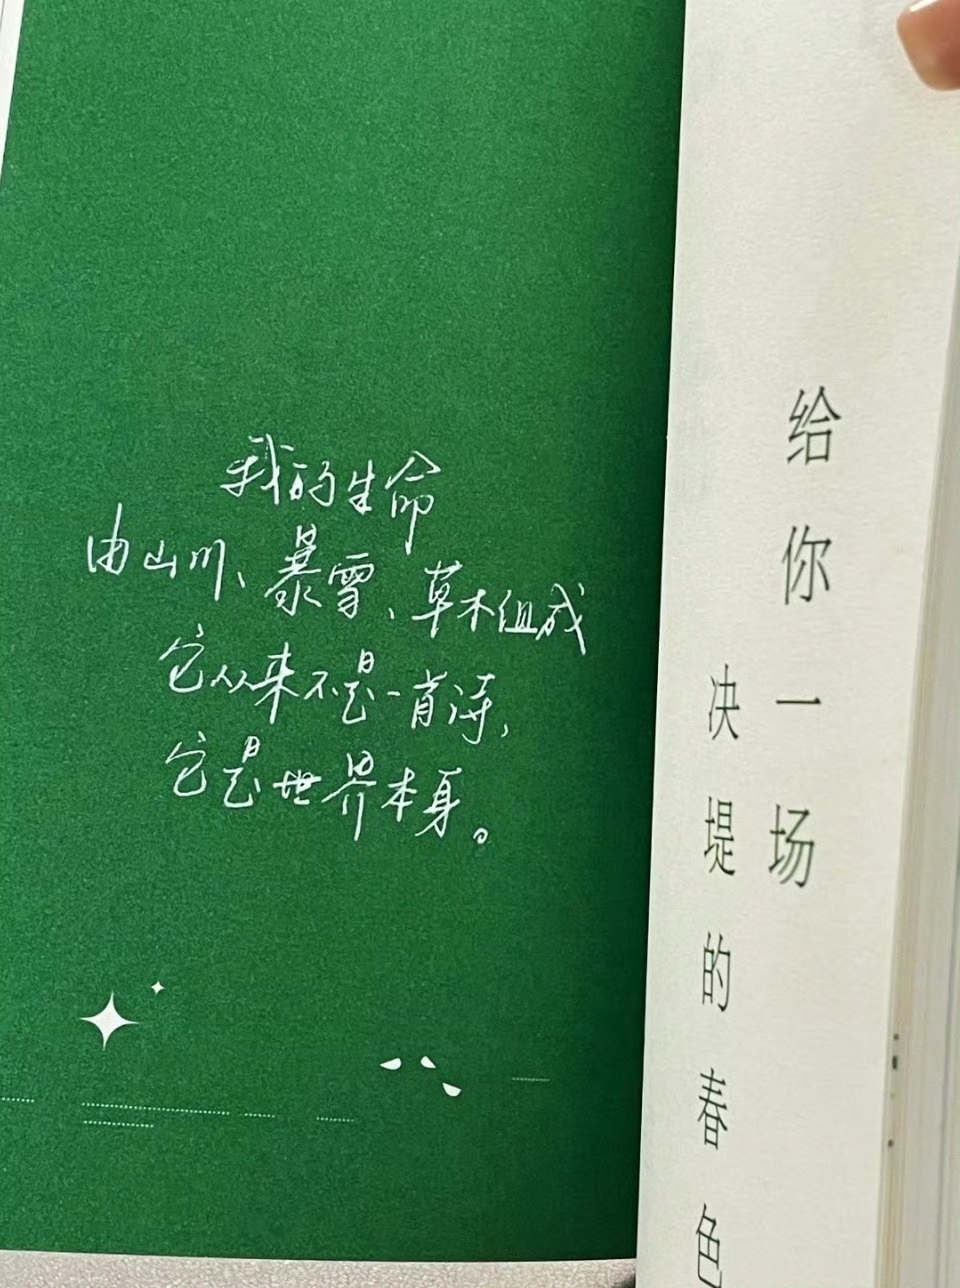 我的生命
由山川、暴雪、草木组成
它从来不是一首诗,
它是世界本身。
给你一场
决堤的春色